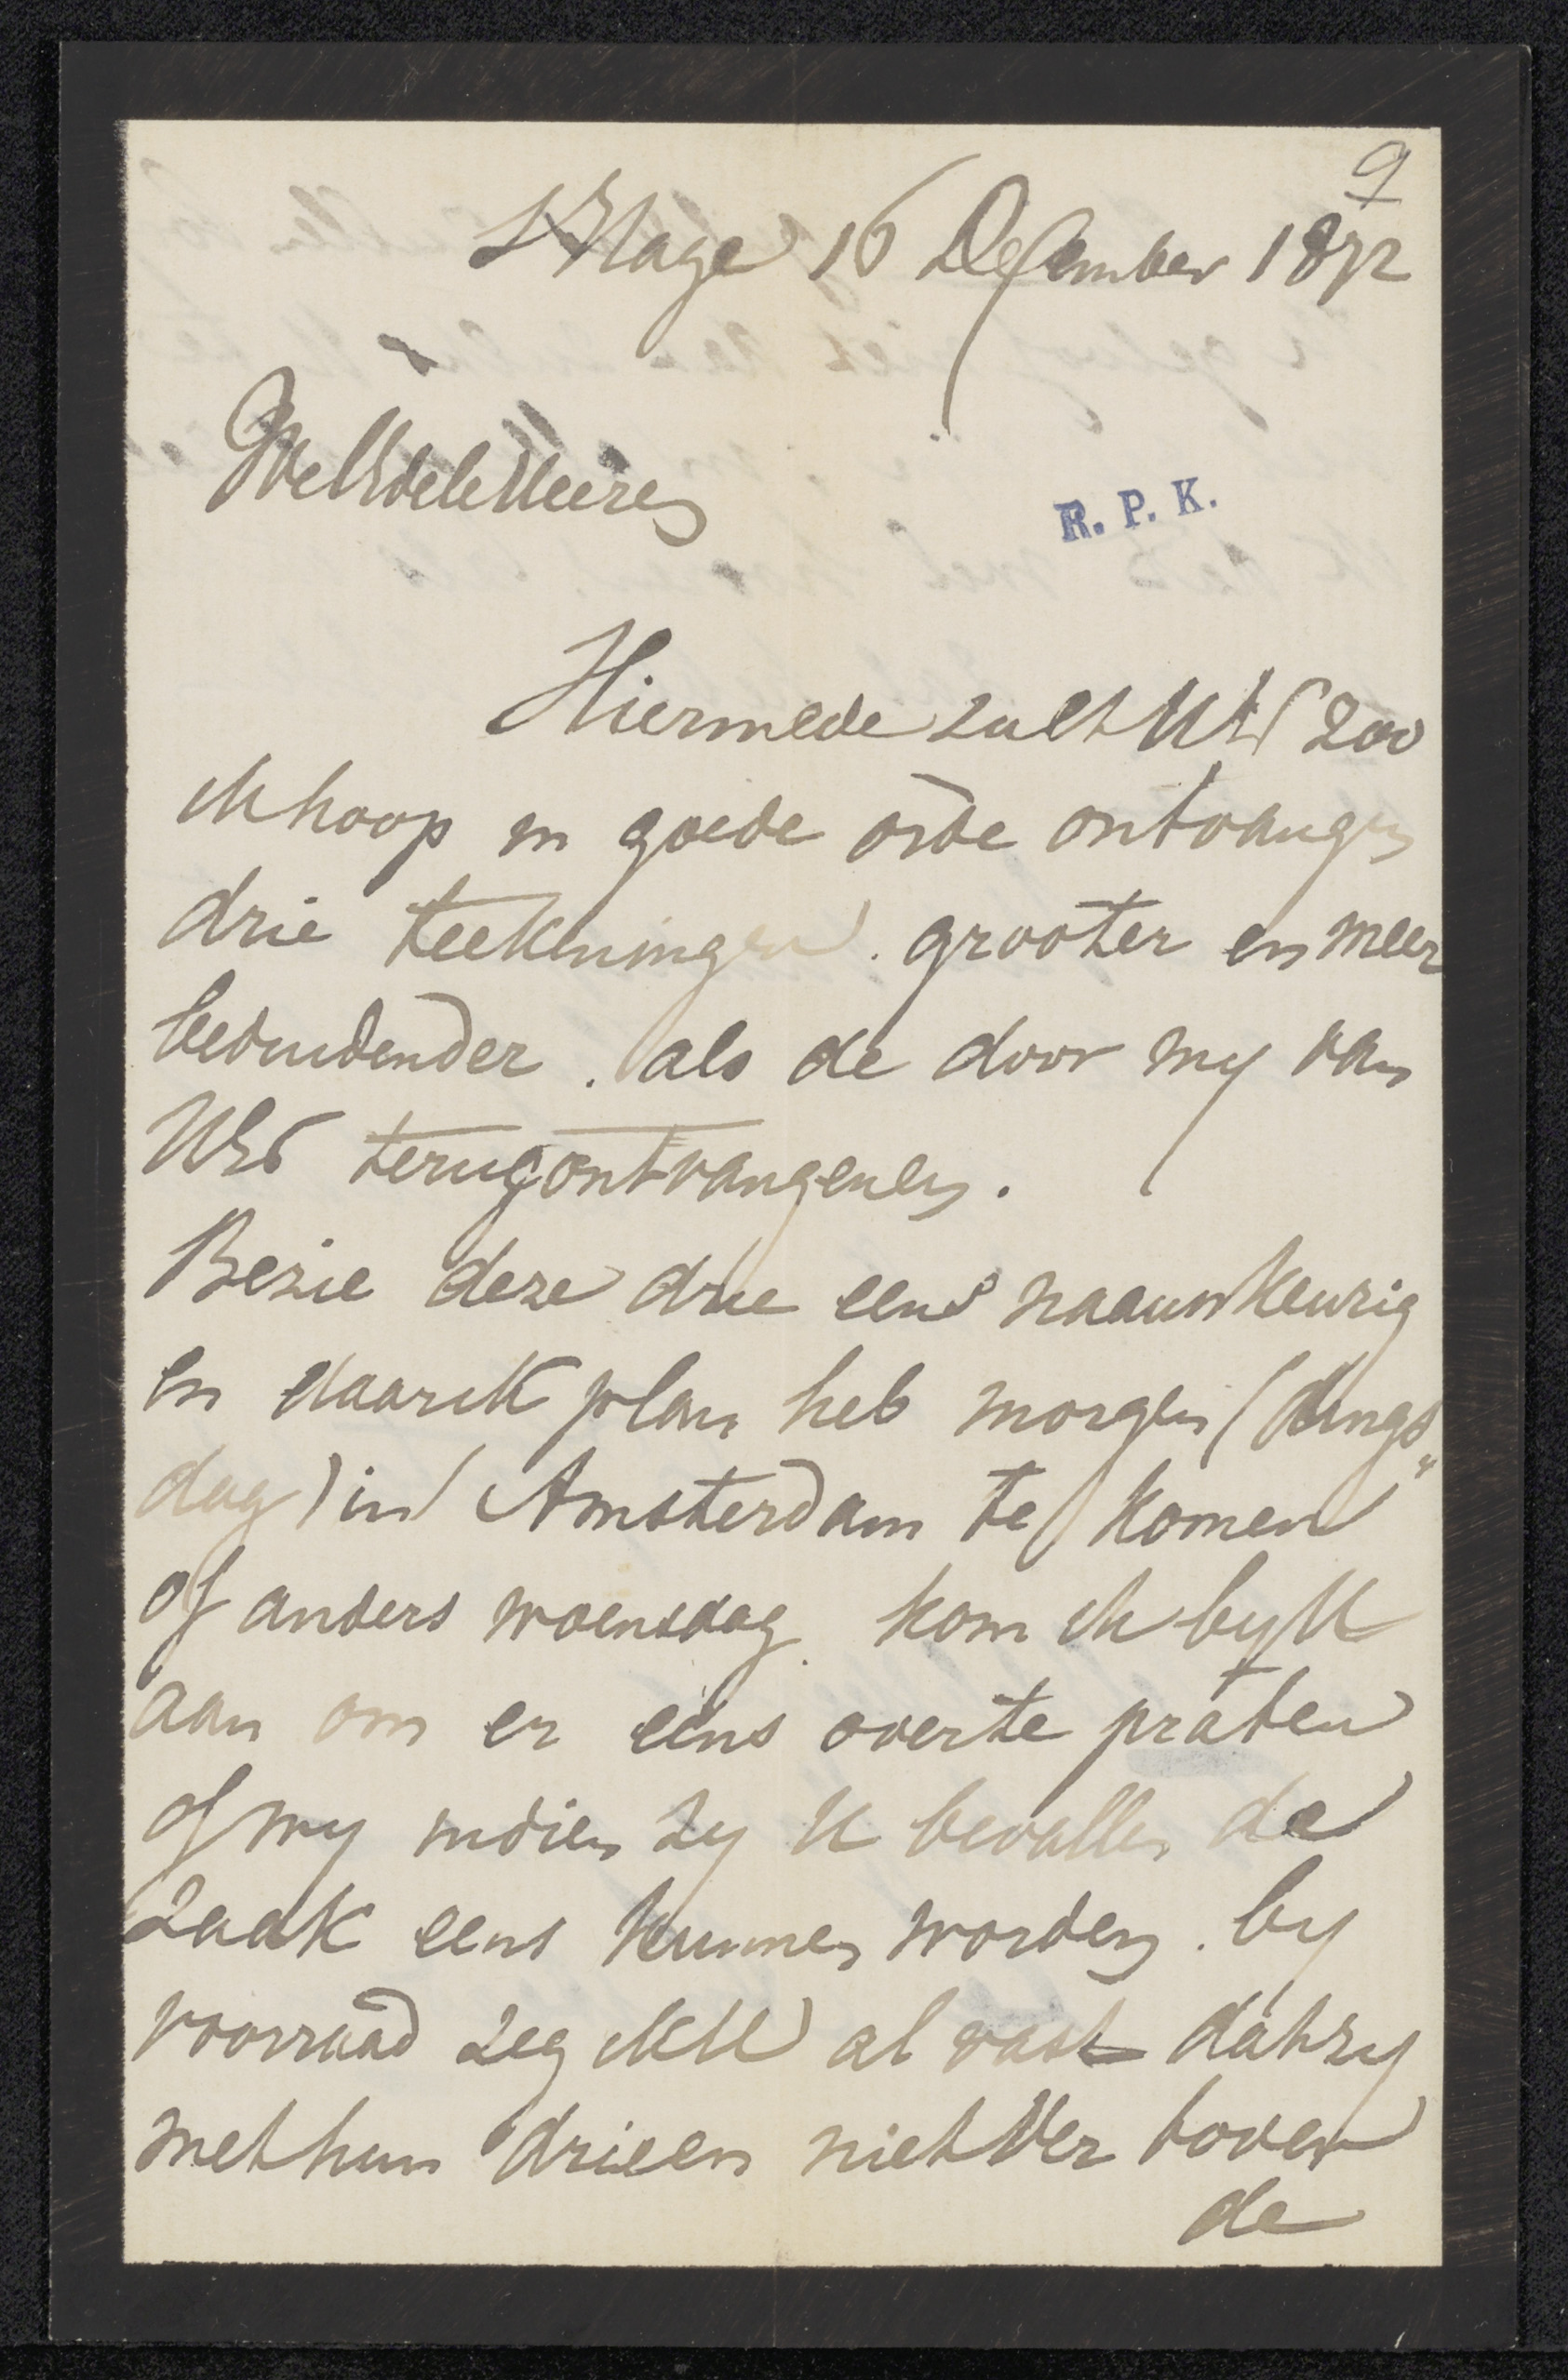 9
s'Hage 16 December 1872
WelEdele Heeren
R. P. K.
Hiermede zult UEd zoo
ik hoop in goede orde ontvangen
drie teekeningen. grooter en meer
beduidender. als de door my van
UEd terugontvangenen.
Bezie deze drie eens naauwkeurig
en daar ik plan heb morgen (dings„
dag) in Amsterdam te komen
of anders woensdag. kom ik by U
aan om er eens over te praten
of wy indien zy U bevallen de
zaak eens kunnen worden. by
voorraad zeg ik U al vast dat zy
met hun drieen niet ver boven
de